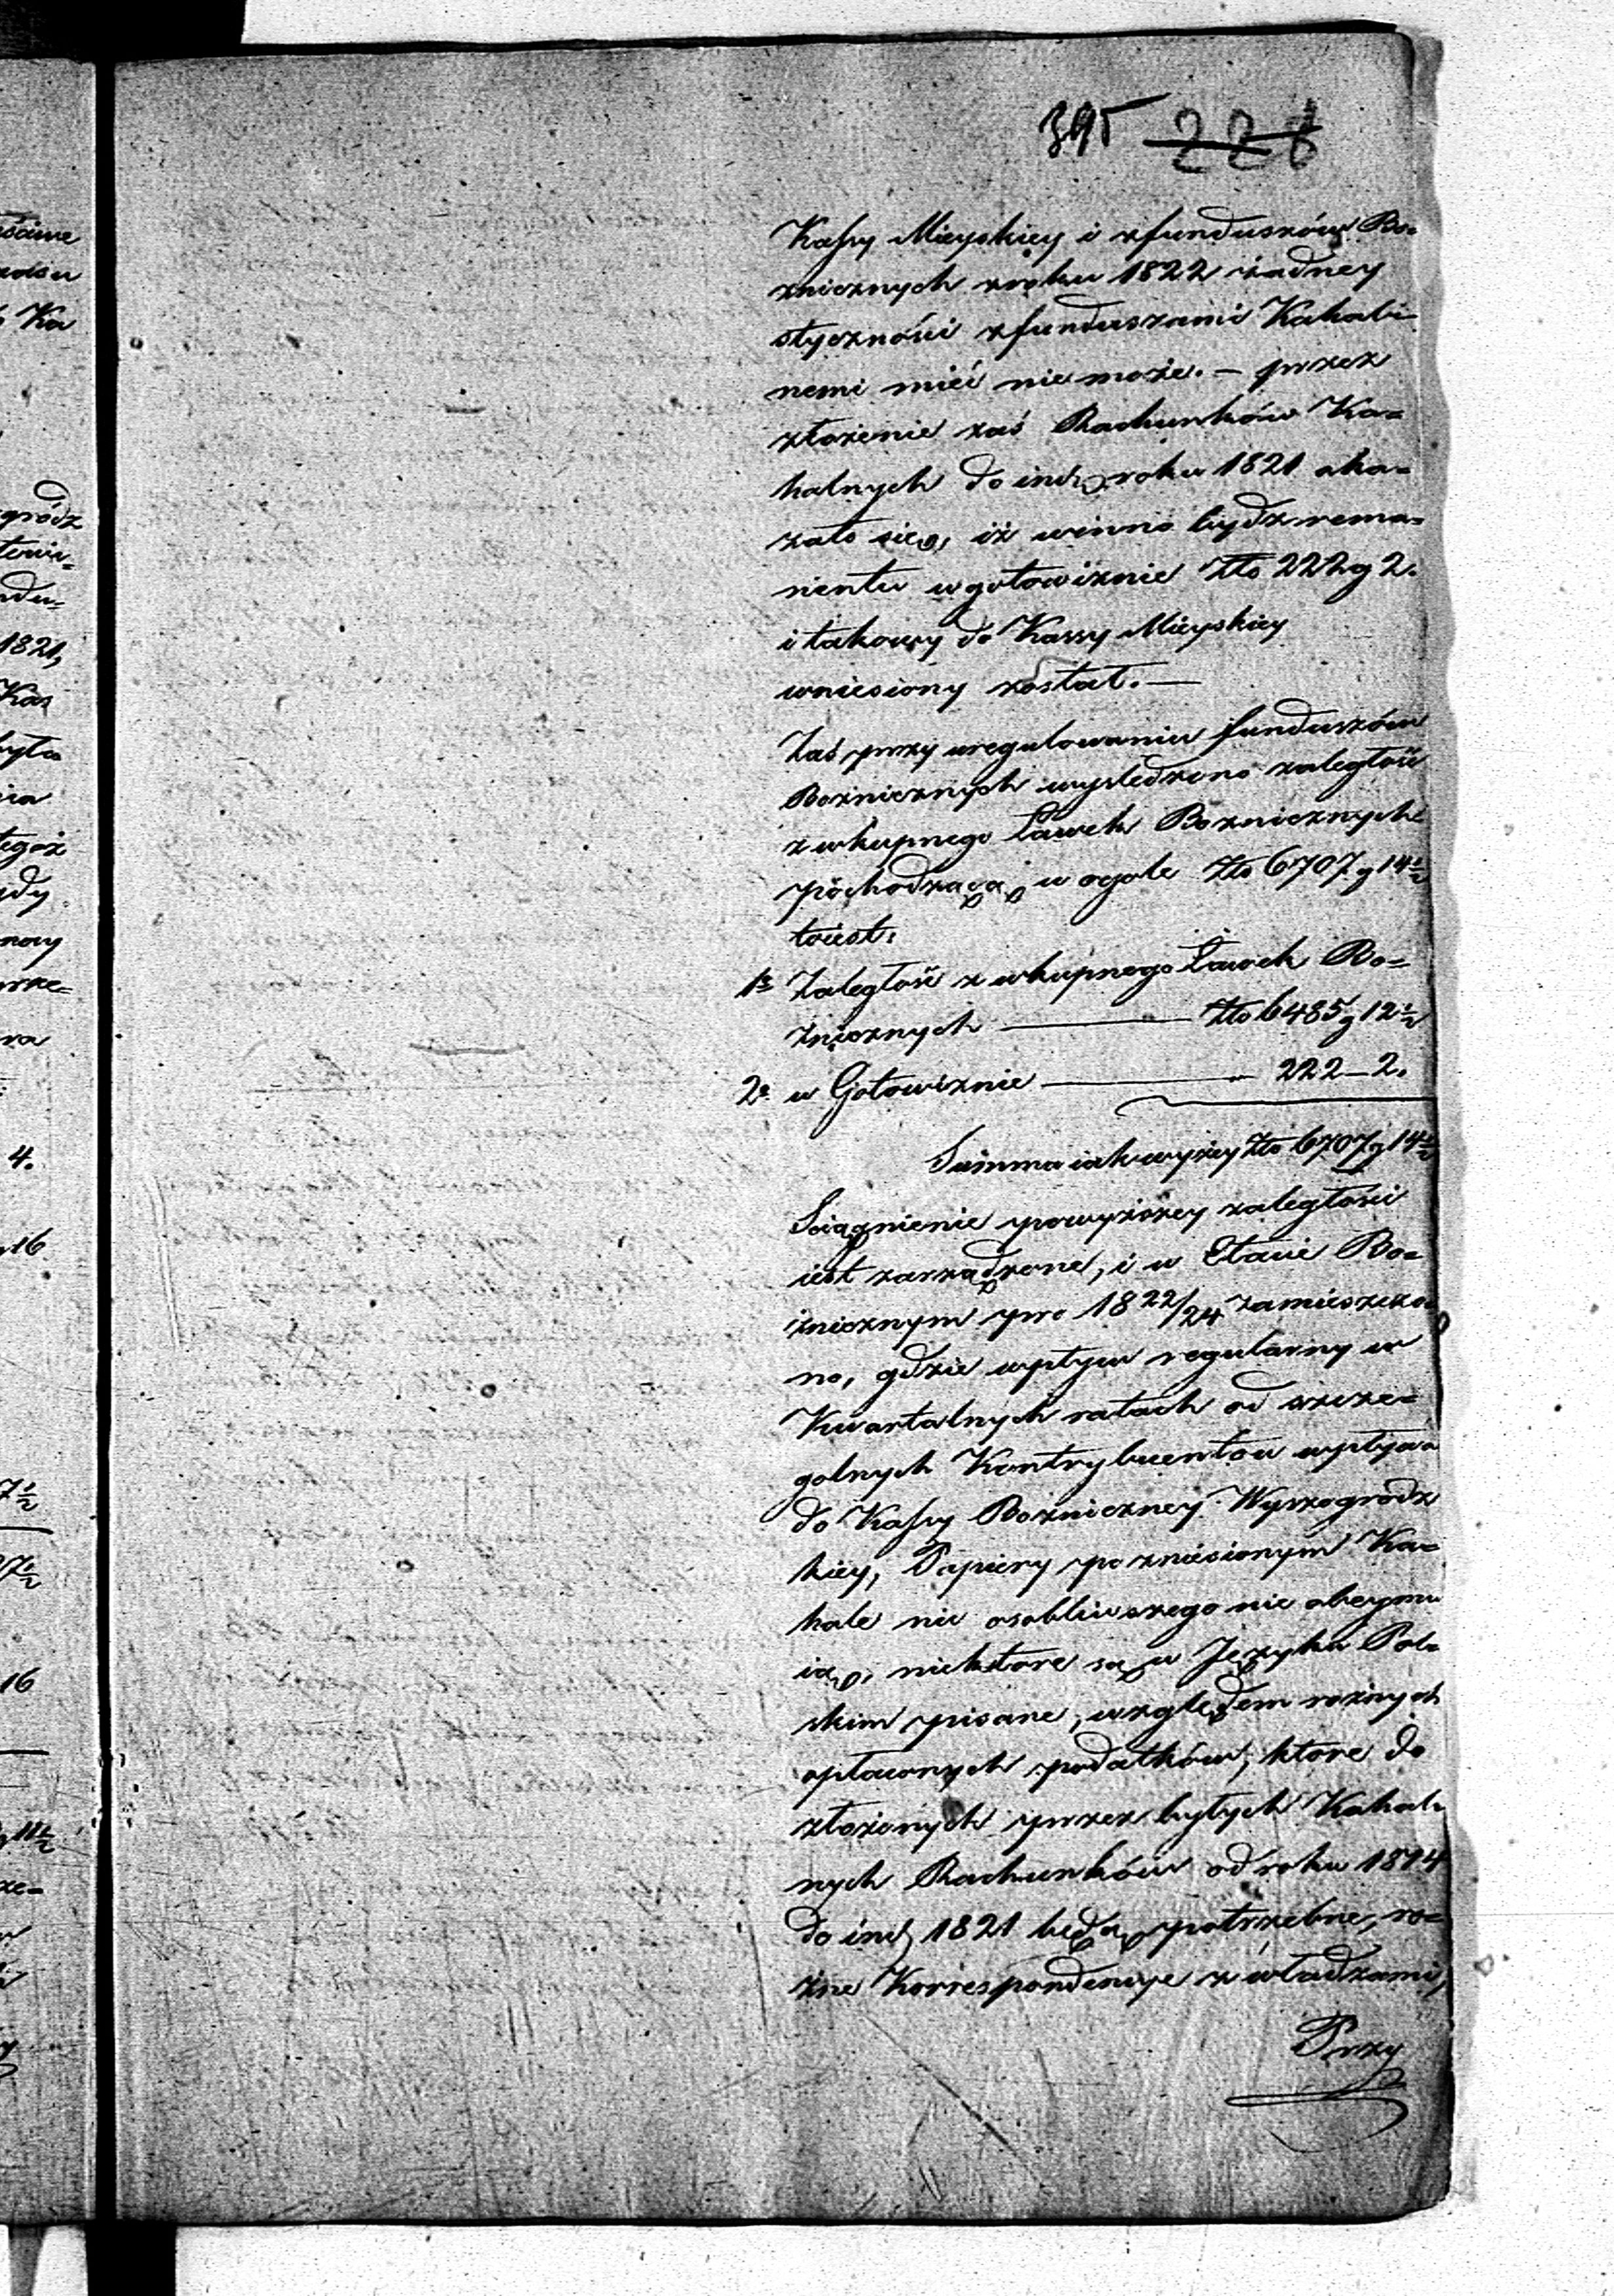 395 228
Kassy Mieyskiey i zfunduszów Bo=
znicznych zroku 1822 żadney
styczności zfunduszami Kahal=
nemi mieć nie może. – przez
złożenie zaś Rachunków Ka=
halnych do incl. roku 1821 oka=
zało się, iż winno bydz rema=
nentu w gotowiznie Złto 222 g 2.
i takowy do Kassy Mieyskiey
wniesiony został. —
Zaś przy uregulowaniu funduszów
Bozniczných wysledzono zaległość
z wkupnego Ławek Boznicznych
pochodzącą, w ogole Złto 6707 g 14½
toiest:
1o Zaległość z wkupnego Ławek Bo=
żnicznych — Złto 6485 g 12½
2o w Gotowiznie — 222 – 2.
Summa iak wyżey Złto 6707 g 14½
Sciągnienie powyższey zaległości
iest zarządzone, i w Etacie Bo=
żnicznym pro 1822/24 zamieszczo
no, gdzie wpływ regularny w
Kwartalnych ratach od szcze=
golnych Kontrybuentow wpływa
do Kassy Bozniczney Wyszogrodz
kiey, Papiery po zniesionym Ka=
hale nic osobliwszego nie obeymu
ią, niektore są w Języku Pol=
skim pisane, względem roznych
opłaconych podatków, ktore do
złożonych przez byłych Kahal=
nych Rachunków od roku 1814
do incl. 1821 będą potrzebne, ro=
żne Korrespondencye z władzami,
Przy